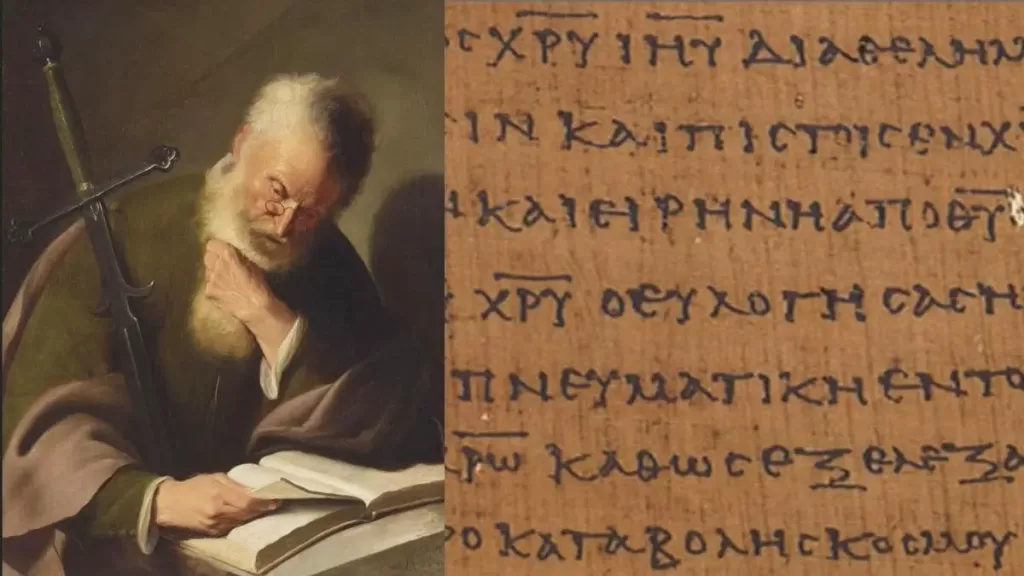 Ϲ Χ̅Ρ̅Υ̅ Ι̅Η̅Υ̅ ΔΙΑΘΕΛΗΜ
ΙΝ ΚΑΙΠΙϹΤΟΙϹΕΝΧ
ΚΑΙΕΙΡΗΝΗΑΠΟΘ̅Υ̅
Χ̅Ρ̅Υ̅ ΟΕΥΛΟΓΗϹΑϹΗ
ΠΝΕΥΜΑΤΙΚΗΕΝΤΟ
Χ̅Ρ̅Ω̅ ΚΑΘΩϹΕΞΕΛΕΞΑ
ΡΟΚΑΤΑΒΟΛΗϹΚΟϹΜΟΥ